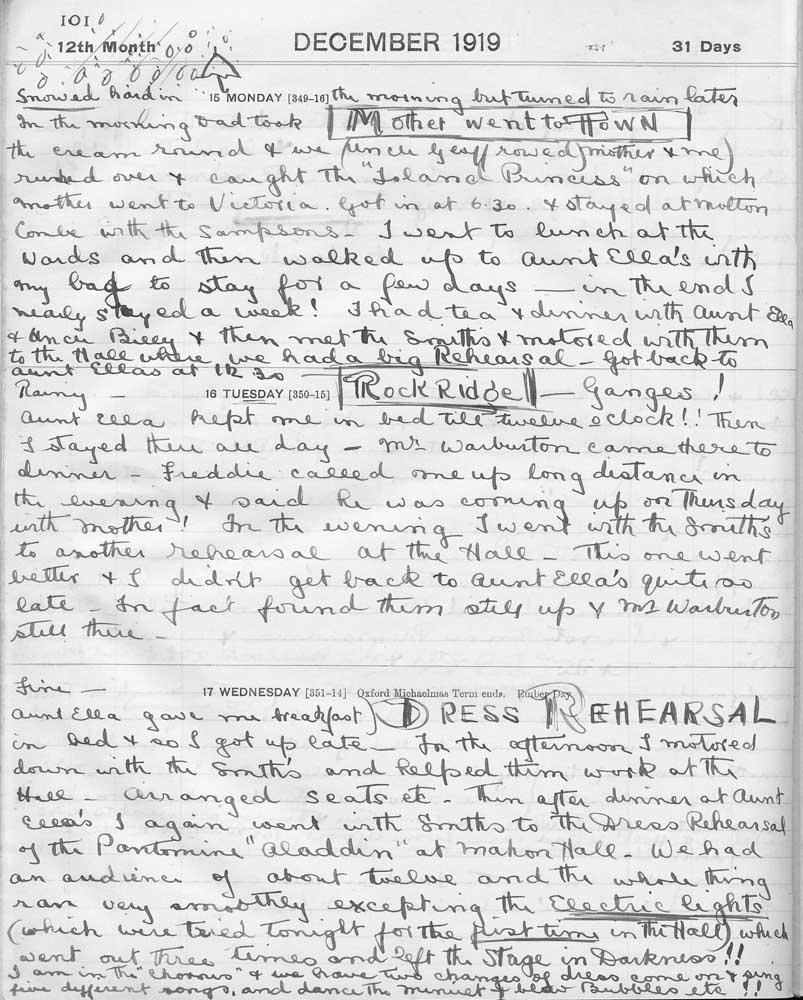 101
12th Month
DECEMBER 1919
31 Days
Snowed hard in 15 MONDAY [349-16] the morning but turned to rain later
In the morning Dad took MOTHER WENT TO TOWN
the cream round & we (Uncle Geoff rowed mother & me)
rushed over & caught the "Island Princess" on which
mother went to Victoria. Got in at 6.30. & stayed at Molton
Combe with the Sampsons - I went to lunch at the
Wards and then walked up to Aunt Ella's with
my bag to stay for a few days - in the end I
nearly stayed a week! I had tea & dinner with Aunt Ella
& Uncle Billy & then met the Smiths & motored with them
to the Hall where we had a big Rehearsal - Got back to
Aunt Ellas at 12 30
Rainy - 16 TUESDAY [350-15] ROCK RIDGE - Ganges!
Aunt Ella kept me in bed till twelve o'clock!! Then
I stayed there all day - Mr Warburton came there to
dinner - Freddie called me up long distance in
the evening & said he was coming up on Thursday
with mother! In the evening I went with the Smiths
to another rehearsal at the Hall - This one went
better & I didn't get back to Aunt Ella's quite so
late - In fact found them still up & Mr Warburton
still there -
Fine - 17 WEDNESDAY [351-14] Oxford Michaelmas Term ends. Ember Day
Aunt Ella gave me breakfast) DRESS REHEARSAL
in bed & so I got up late - In the afternoon I motored
down with the Smith's and helped them work at the
Hall - Arranged seats etc - Then after dinner at Aunt
Ella's I again went with Smiths to the Dress Rehearsal
of the Pantomine "Aladdin" at Mahon Hall - We had
an audience of about twelve and the whole thing
ran very smoothly excepting the Electric lights
(which were tried tonight for the first time in the Hall) which
went out three times and left the Stage in Darkness!!
I am in the "Chorous" & we have two changes of dress come on & sing
five different songs, and dance the minuet & blow Bubbles etc !!